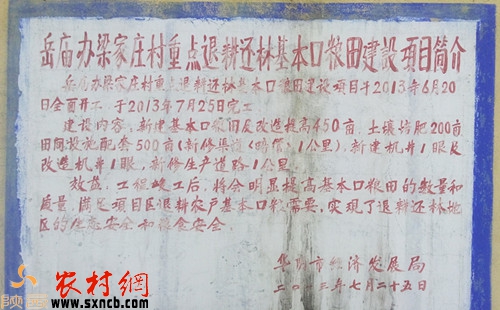 岳庙办梁家庄村重点退耕还林基本口粮田建设项目简介
岳庙办梁家庄村重点退耕还林基本口粮田建设项目于2013年6月20
日全面开工 于2013年7月25日完工
建设内容:新建基本口粮田及改造提高450亩,土壤培肥200亩
田间设施配套500亩(新修渠道(暗管)1公里),新建机井1眼及
改造机井1眼,新修生产道路1公里。
效益:工程竣工后,将会明显提高基本口粮田的数量和
质量,满足项目区退耕农户基本口粮需要,实现了退耕还林地
区的生态安全和粮食安全
华阴市经济发展局
二〇一三年七月二十五日
陕西
农村網
www.sxncb.com